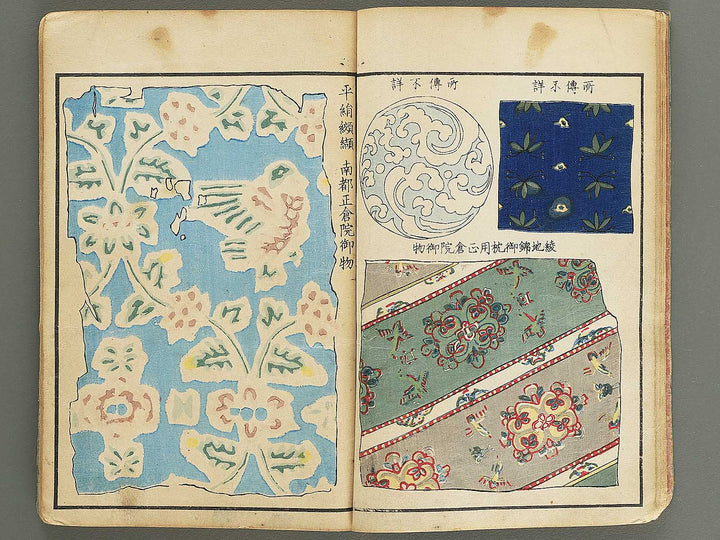 所傳不詳
所傳不詳
綾地錦御枕用正倉院御物
平絹纐纈 南都正倉院御物